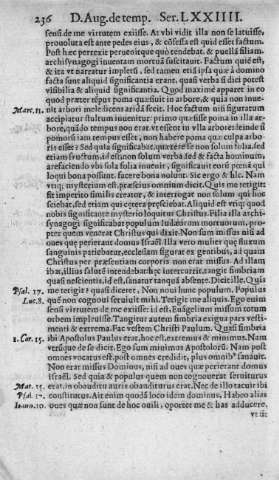 236 D. Aug. de temp. Ser. LXXIIII.
sensi de me virtutem exiisse. At vbi vidit illa non se latuisse,
prouoluta est ante pedes eius, & cõfessa est quid esset factum.
Post hæc perrexit peruenitque quo tendebat, & puellã filiam
archisynagogi inuentam mortuã suscitauit. Factum quid est,
& ita vt narratur impletũ, sed tamen etiã ipsa quæ à domino
facta sunt aliquid significantia erant, quasi verba si dici potest
visibilia & aliquid significantia. Quod maximè apparet in eo
quod præter tẽpus poma quæsiuit in arbore, & quia non inue-
Marc. 11. nit arbori maledicens arida fecit. Hoc factum nisi figuratum
accipiatur stultum inuenitur primo quæsisse poma in illa ar-
bore, quãdo tempus non erat vt essent in vlla arbore: deinde si
pomorũ iam tempus esset, non habere poma quæ culpa arbo-
ris esset? Sed quia significabat, quærere se non solum folia, sed
etiam fructum id est non solum verba sed & facta hominum
arefaciendo vbi sola folia inuenit, significauit eorũ pœna qui
loqui bona possunt, facere bona nolunt. Sic ergo & hîc. Nam
vtiq; mysterium est, præscius omnium dicit. Quis me tetigit?
sit imperito similis creator, & interrogat non solum qui hoc
sciebat, sed etiam qui cetera præsciebat. Aliquid est vtiq; quod
nobis significante mysterio loquitur Christus. Filia illa archi-
synagogi significabat populum Iudæorum mortuum, pro-
pter quem venerat Christus qui dixit. Non sum missus nisi ad
oues quæ perierant domus Israël. Illa vero mulier quæ fluxum
sanguinis patiebatur, ecclesiam figurat ex gentibus, ad quam
Christus per præsentiam corporis non erat missus. Ad illam
ibat, illius salutẽ intendebat: hæc intercurrit, tangit fimbriam
quasi nescientis, id est, sanatur tanquã absente. Dicit ille. Quis
Psal. 17. me tetigit? quasi diceret, Non noui hunc populum. Populus
Luc. 8. quẽ non cognoui seruiuit mihi. Tetigit me aliquis. Ego enim
sensi virtutem de me exiisse: id est, Euãgelium missum totum
orbem impleuisse. Tangitur autem fimbria exigua pars vesti-
menti & extrema. Fac vestem Christi Paulum. Quasi fimbria
1. Cor. 15. ibi Apostolus Paulus erat, hoc est, extremus & minimus. Nam
vtrũque de se dicit. Ego sum minimus Apostolorũ. Nam post
omnes vocatus est, post omnes credidit, plus omnibº sanauit.
Non erat missus Dominus, nisi ad oues quæ perierant domus
Israël. Sed quia & populus quem non cognouerat seruiturus
Mat. 15. erat, in obauditu auris obauditurus erat. Nec de illo tacuit ibi
Psal. 17. constitutus. Ait enim quodã loco idem dominus. Habeo alias
Ioann. 10. oues quæ non sunt de hoc ouili, oportet me & has adducere,